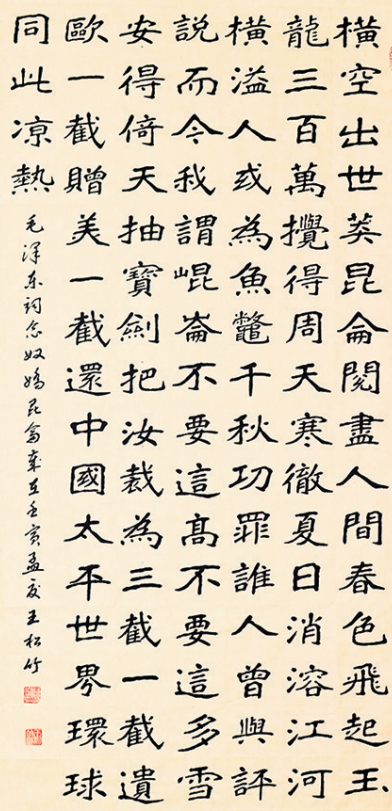 橫空出世莽昆侖閱盡人間春色飛起玉
龍三百萬攪得周天寒徹夏日消溶江河
橫溢人或為魚鱉千秋功罪誰人曾與評
說而今我謂崐崙不要這高不要這多雪
安得倚天抽寶劍把汝裁為三截一截遺
歐一截贈美一截還中國太平世界環球
同此凉熱
毛澤东詞念奴嬌昆侖歲在壬寅孟夏王松竹